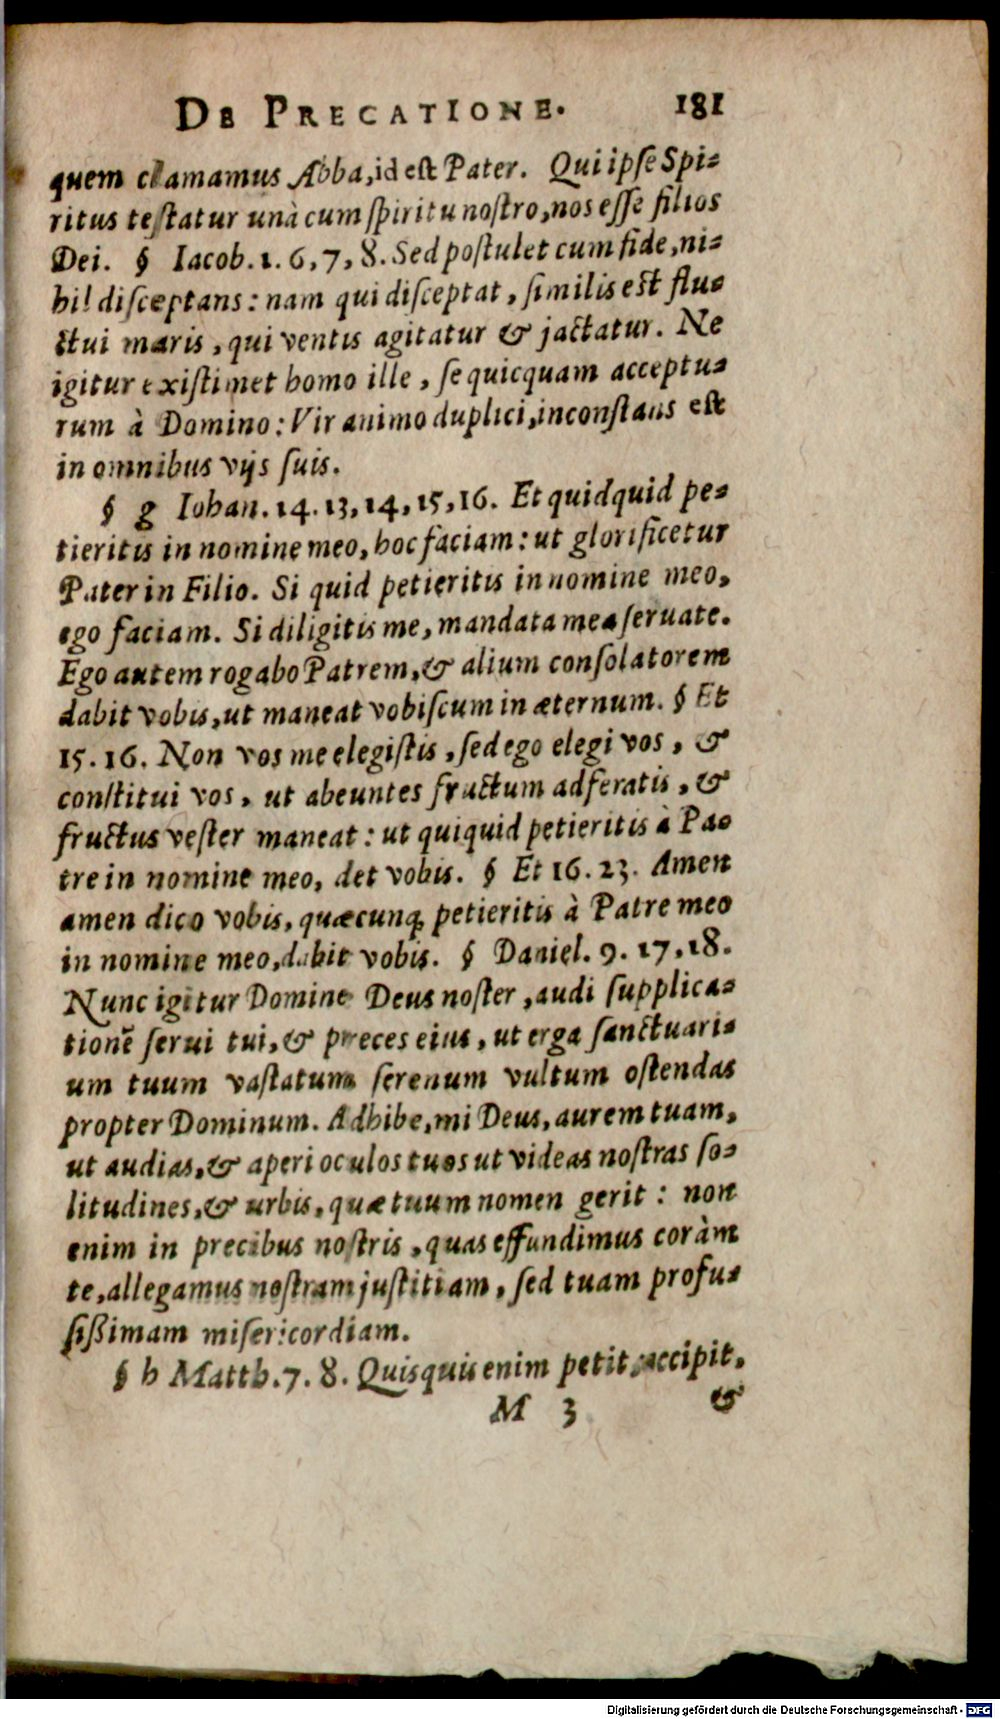 DE PRECATIONE. 181
quem clamamus Abba, id est Pater. Qui ipse Spi-
ritus testatur unà cum spiritu nostro, nos esse filios
Dei. § Iacob. 1. 6, 7, 8. Sed postulet cum fide, ni-
hil disceptans: nam qui disceptat, similis est flu-
ctui maris, qui ventis agitatur & jactatur. Ne
igitur existimet homo ille, se quicquam acceptu-
rum à Domino: Vir animo duplici, inconstans est
in omnibus vijs suis.
§ g Iohan. 14. 13, 14, 15, 16. Et quidquid pe-
tieritis in nomine meo, hoc faciam: ut glorificetur
Pater in Filio. Si quid petieritis in nomine meo,
ego faciam. Si diligitis me, mandata mea seruate.
Ego autem rogabo Patrem, & alium consolatorem
dabit vobis, ut maneat vobiscum in æternum. § Et
15. 16. Non vos me elegistis, sed ego elegi vos, &
constitui vos, ut abeuntes fructum adferatis, &
fructus vester maneat: ut quiquid petieritis à Pa-
tre in nomine meo, det vobis. § Et 16. 23. Amen
amen dico vobis, quæcunq; petieritis à Patre meo
in nomine meo, dabit vobis. § Daniel. 9. 17, 18.
Nunc igitur Domine Deus noster, audi supplica-
tionē serui tui, & preces eius, ut erga sanctuari-
um tuum vastatum serenum vultum ostendas
propter Dominum. Adhibe, mi Deus, aurem tuam,
ut audias, & aperi oculos tuos ut videas nostras so-
litudines, & urbis, quæ tuum nomen gerit: non
enim in precibus nostris, quas effundimus coràm
te, allegamus nostram justitiam, sed tuam profu-
sißimam misericordiam.
§ h Matth. 7. 8. Quisquis enim petit, accipit,
M 3 &
Digitalisierung gefördert durch die Deutsche Forschungsgemeinschaft - DFG